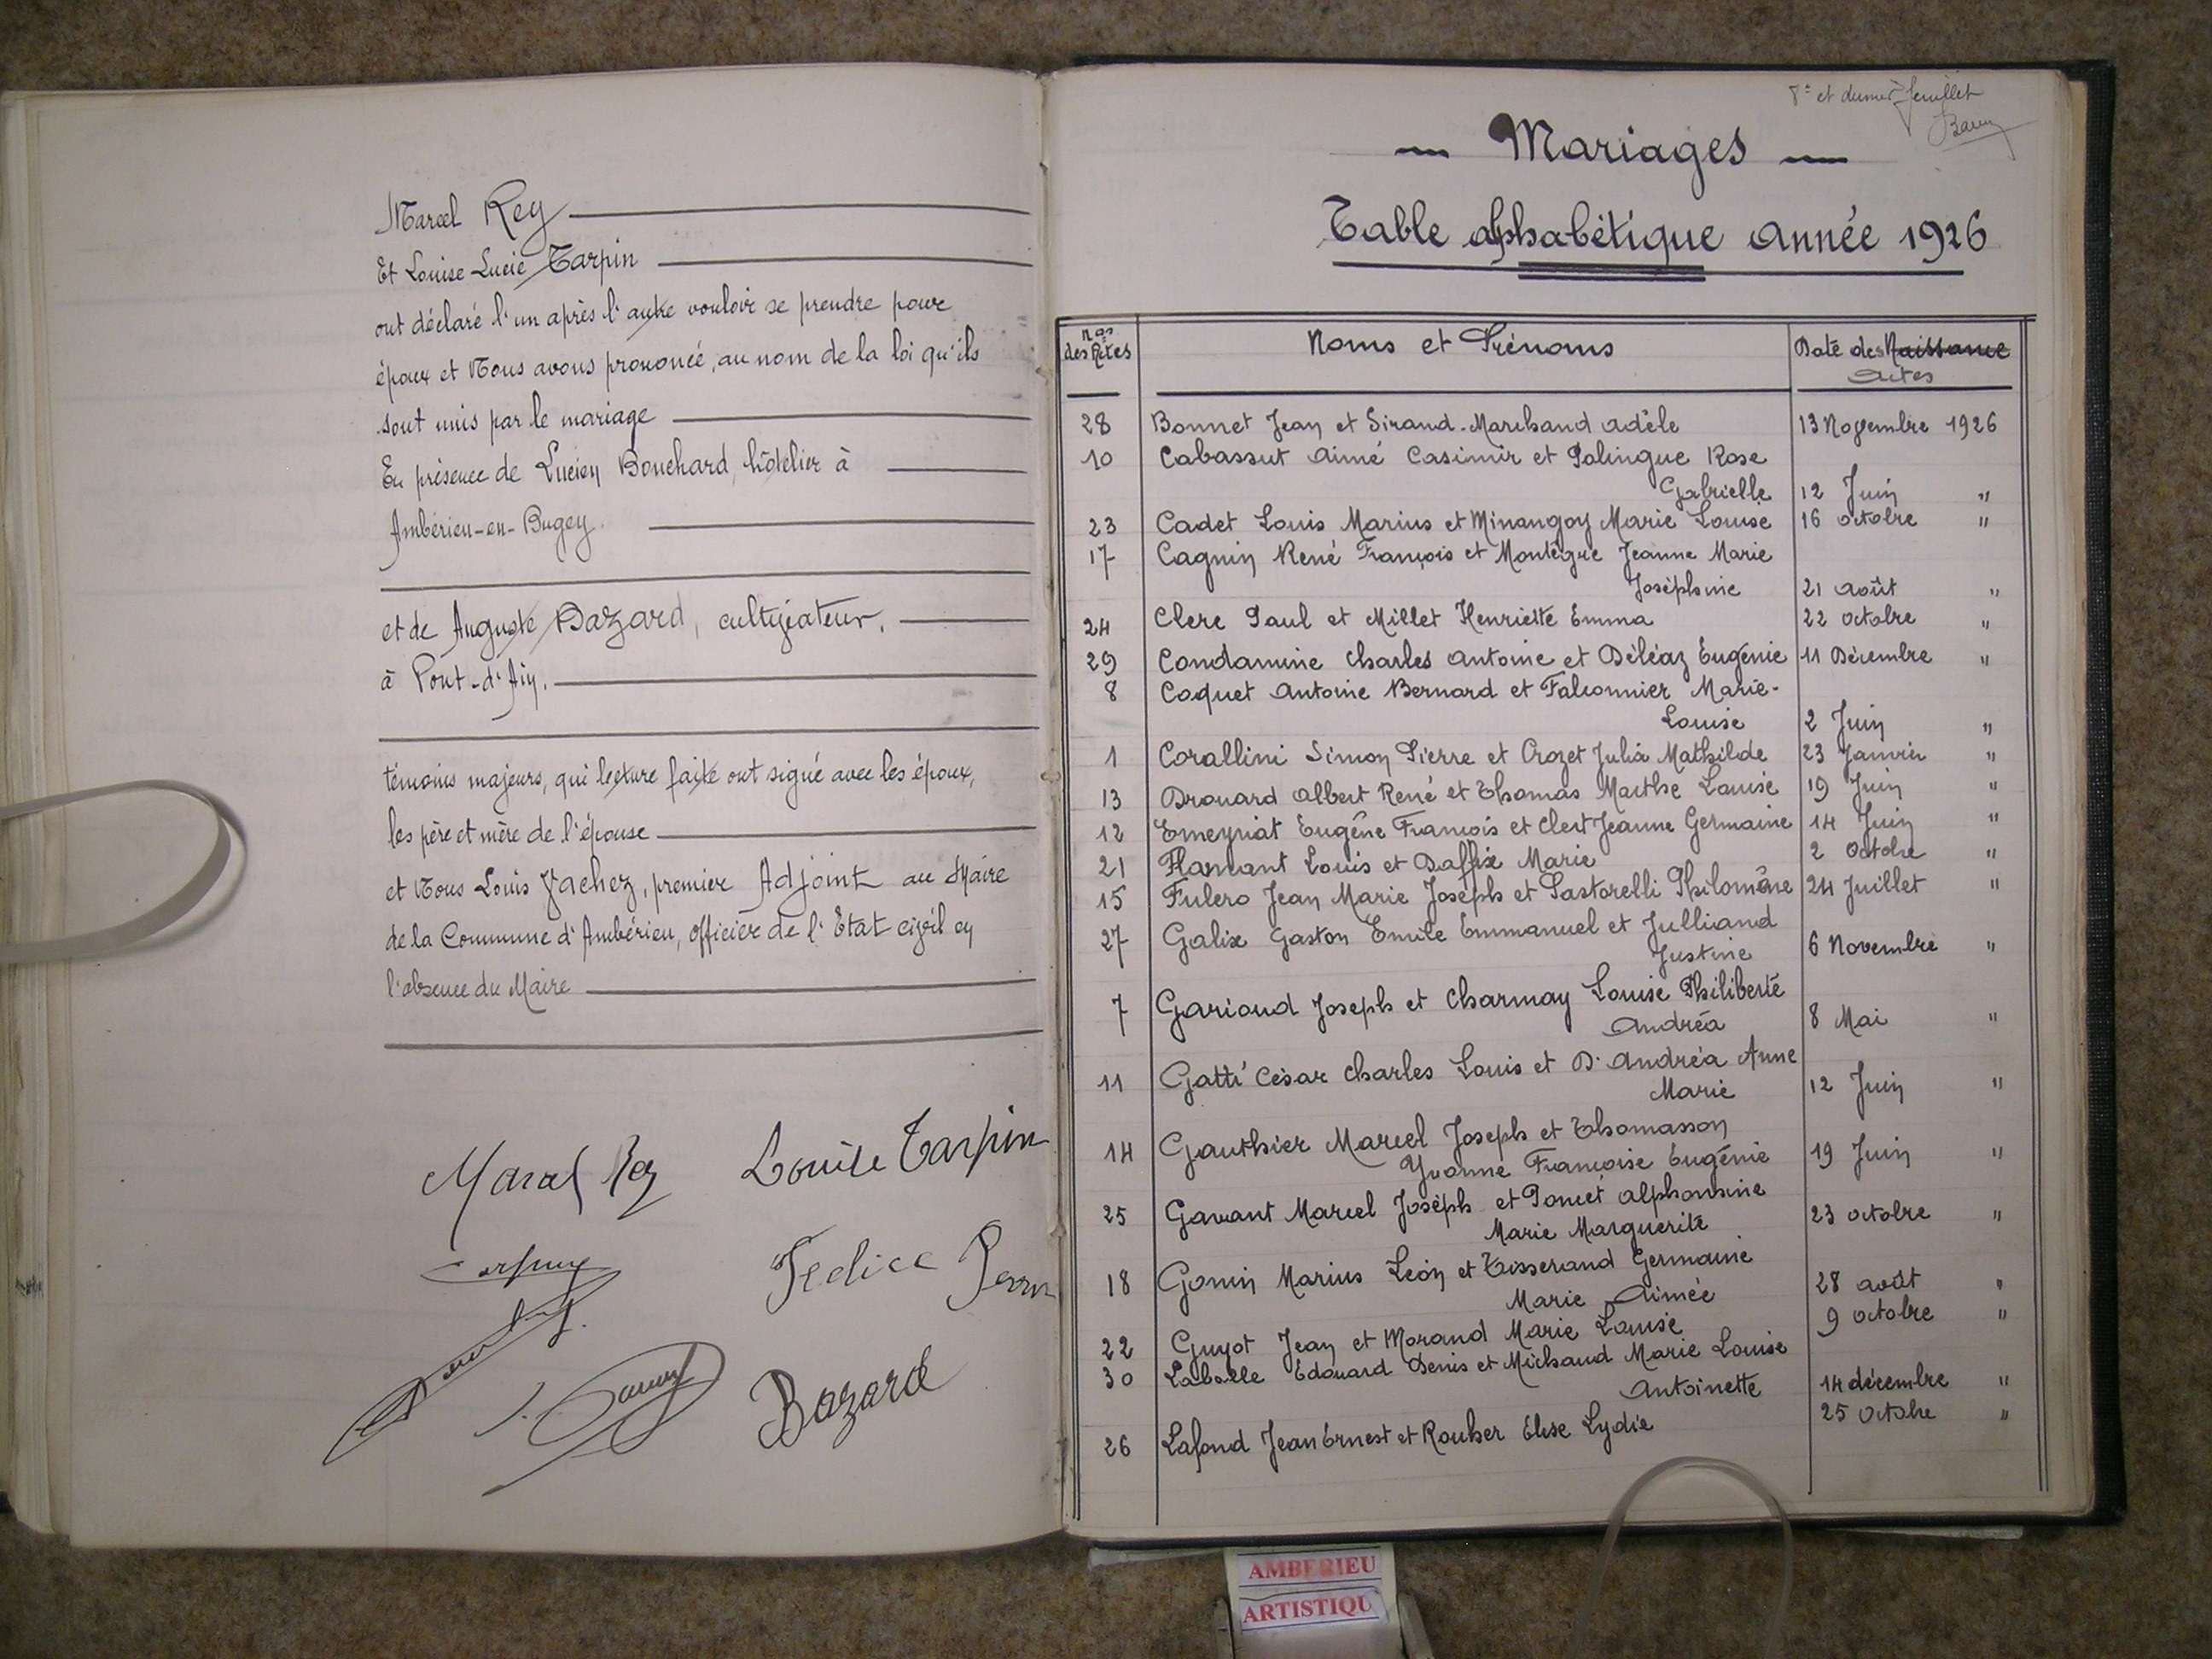 Marcel Rey
Et Louise Lucie Tarpin
ont déclaré l'un après l'autre vouloir se prendre pour
époux et Nous avons prononcé, au nom de la loi qu'ils
sont unis par le mariage
En présence de Lucien Bouchard, hôtelier à
Ambérieu-en-Bugey.
et de Auguste Bazard, cultivateur,
à Pont-d'Ain.
témoins majeurs, qui lecture faite ont signé avec les époux,
les père et mère de l'épouse
et Nous Louis Vachez, premier Adjoint au Maire
de la Commune d'Ambérieu, officier de l'Etat civil en
l'absence du Maire
Marcel Rey Louise Tarpin
Bazard
8e et dernier feuillet
Mariages
Table alphabétique année 1926
Nos des Actes Noms et Prénoms Date des Naissance
Actes
28 Bonnet Jean et Sirand-Marchand Adèle 13 Novembre 1926
10 Cabassut Aimé Casimir et Palingue Rose
Gabrielle 12 Juin "
23 Cadet Louis Marius et Minangoy Marie Louise 16 octobre "
17 Cagnin René François et Montègre Jeanne Marie
Joséphine 21 août "
24 Clerc Paul et Millet Henriette Emma 22 octobre "
29 Condamine Charles Antoine et Déléaz Eugénie 11 Décembre "
8 Coquet Antoine Bernard et Falconnier Marie-
Louise 2 Juin "
1 Corallini Simon Pierre et Crozet Julia Mathilde 23 Janvier "
13 Drouard Albert René et Thomas Marthe Louise 19 Juin "
12 Emeyriat Eugène François et Clert Jeanne Germaine 14 Juin "
21 Flamant Louis et Daffix Marie 2 Octobre "
15 Fulero Jean Marie Joseph et Pastorelli Philomène 24 Juillet "
27 Galix Gaston Emile Emmanuel et Julliand
Justine 6 Novembre "
7 Garioud Joseph et Charmay Louise Philiberte
Andréa 8 Mai "
11 Gatti César Charles Louis et D'Andréa Anne
Marie 12 Juin "
14 Gauthier Marcel Joseph et Thomasson
Yvonne Françoise Eugénie 19 Juin "
25 Gavant Marcel Joseph et Poncet Alphonsine
Marie Marguerite 23 octobre "
18 Gonin Marius Léon et Tisserand Germaine
Marie Aimée 28 août "
22 Guyot Jean et Morand Marie Louise 9 octobre "
30 Labolle Edouard Denis et Michaud Marie Louise
Antoinette 14 décembre "
26 Lafond Jean Ernest et Rouher Elise Lydie 25 Octobre "
AMBERIEU
ARTISTIQU